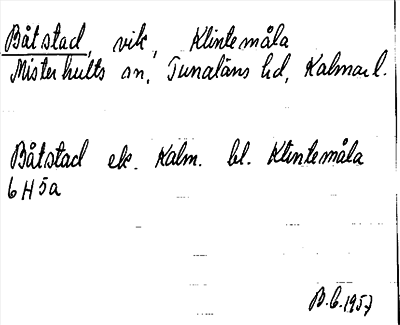 Båtstad, vik, Klintemåla
Misterhults sn, Tunaläns hd, Kalmar l.
Båtstad ek. Kalm. bl. Klintemåla
6 H 5a
B.C. 1957